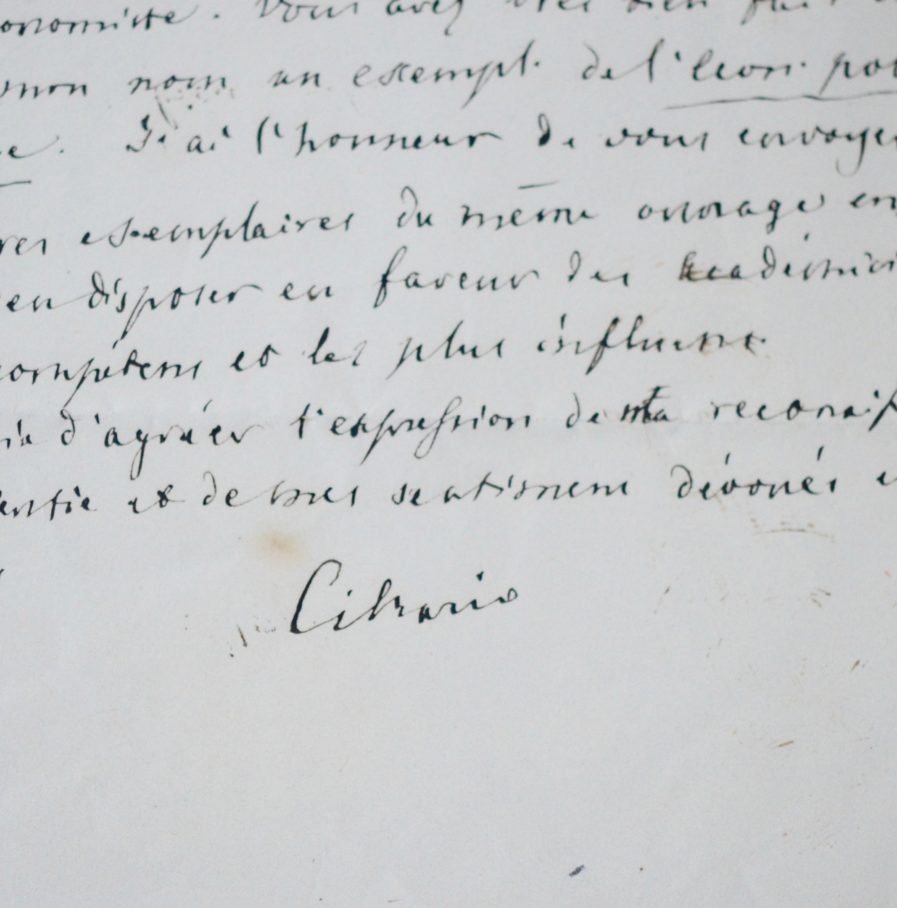 onomiste. Vous avez très bien fait
mon nom un exempl. de l'écon. pol
e. J'ai l'honneur de vous envoyer
res exemplaires du même ouvrage en
en disposer en faveur des académici
compétens et les plus influens.
d'agréer l'expression de ma reconaiss
entie et de mes sentimens dévoués e
Cibrario